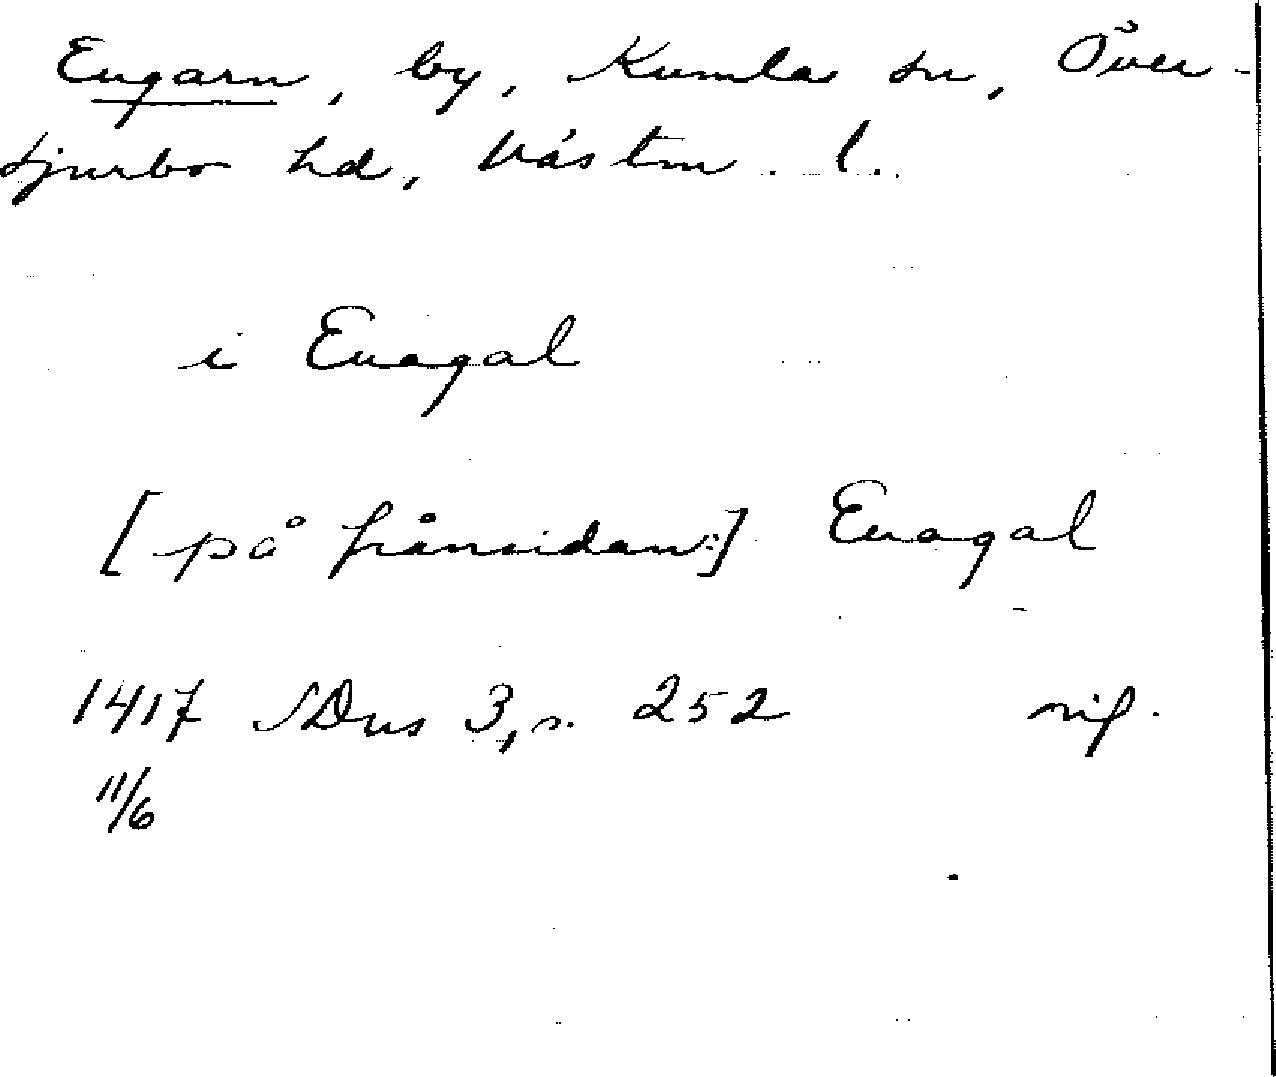 Engarn, by, Kumla sn, Över-
tjurbo hd, Västm. l.
i Enagal
[på frånsidan:] Enagal
1417 SDns 3, s. 252 rif.
11/6